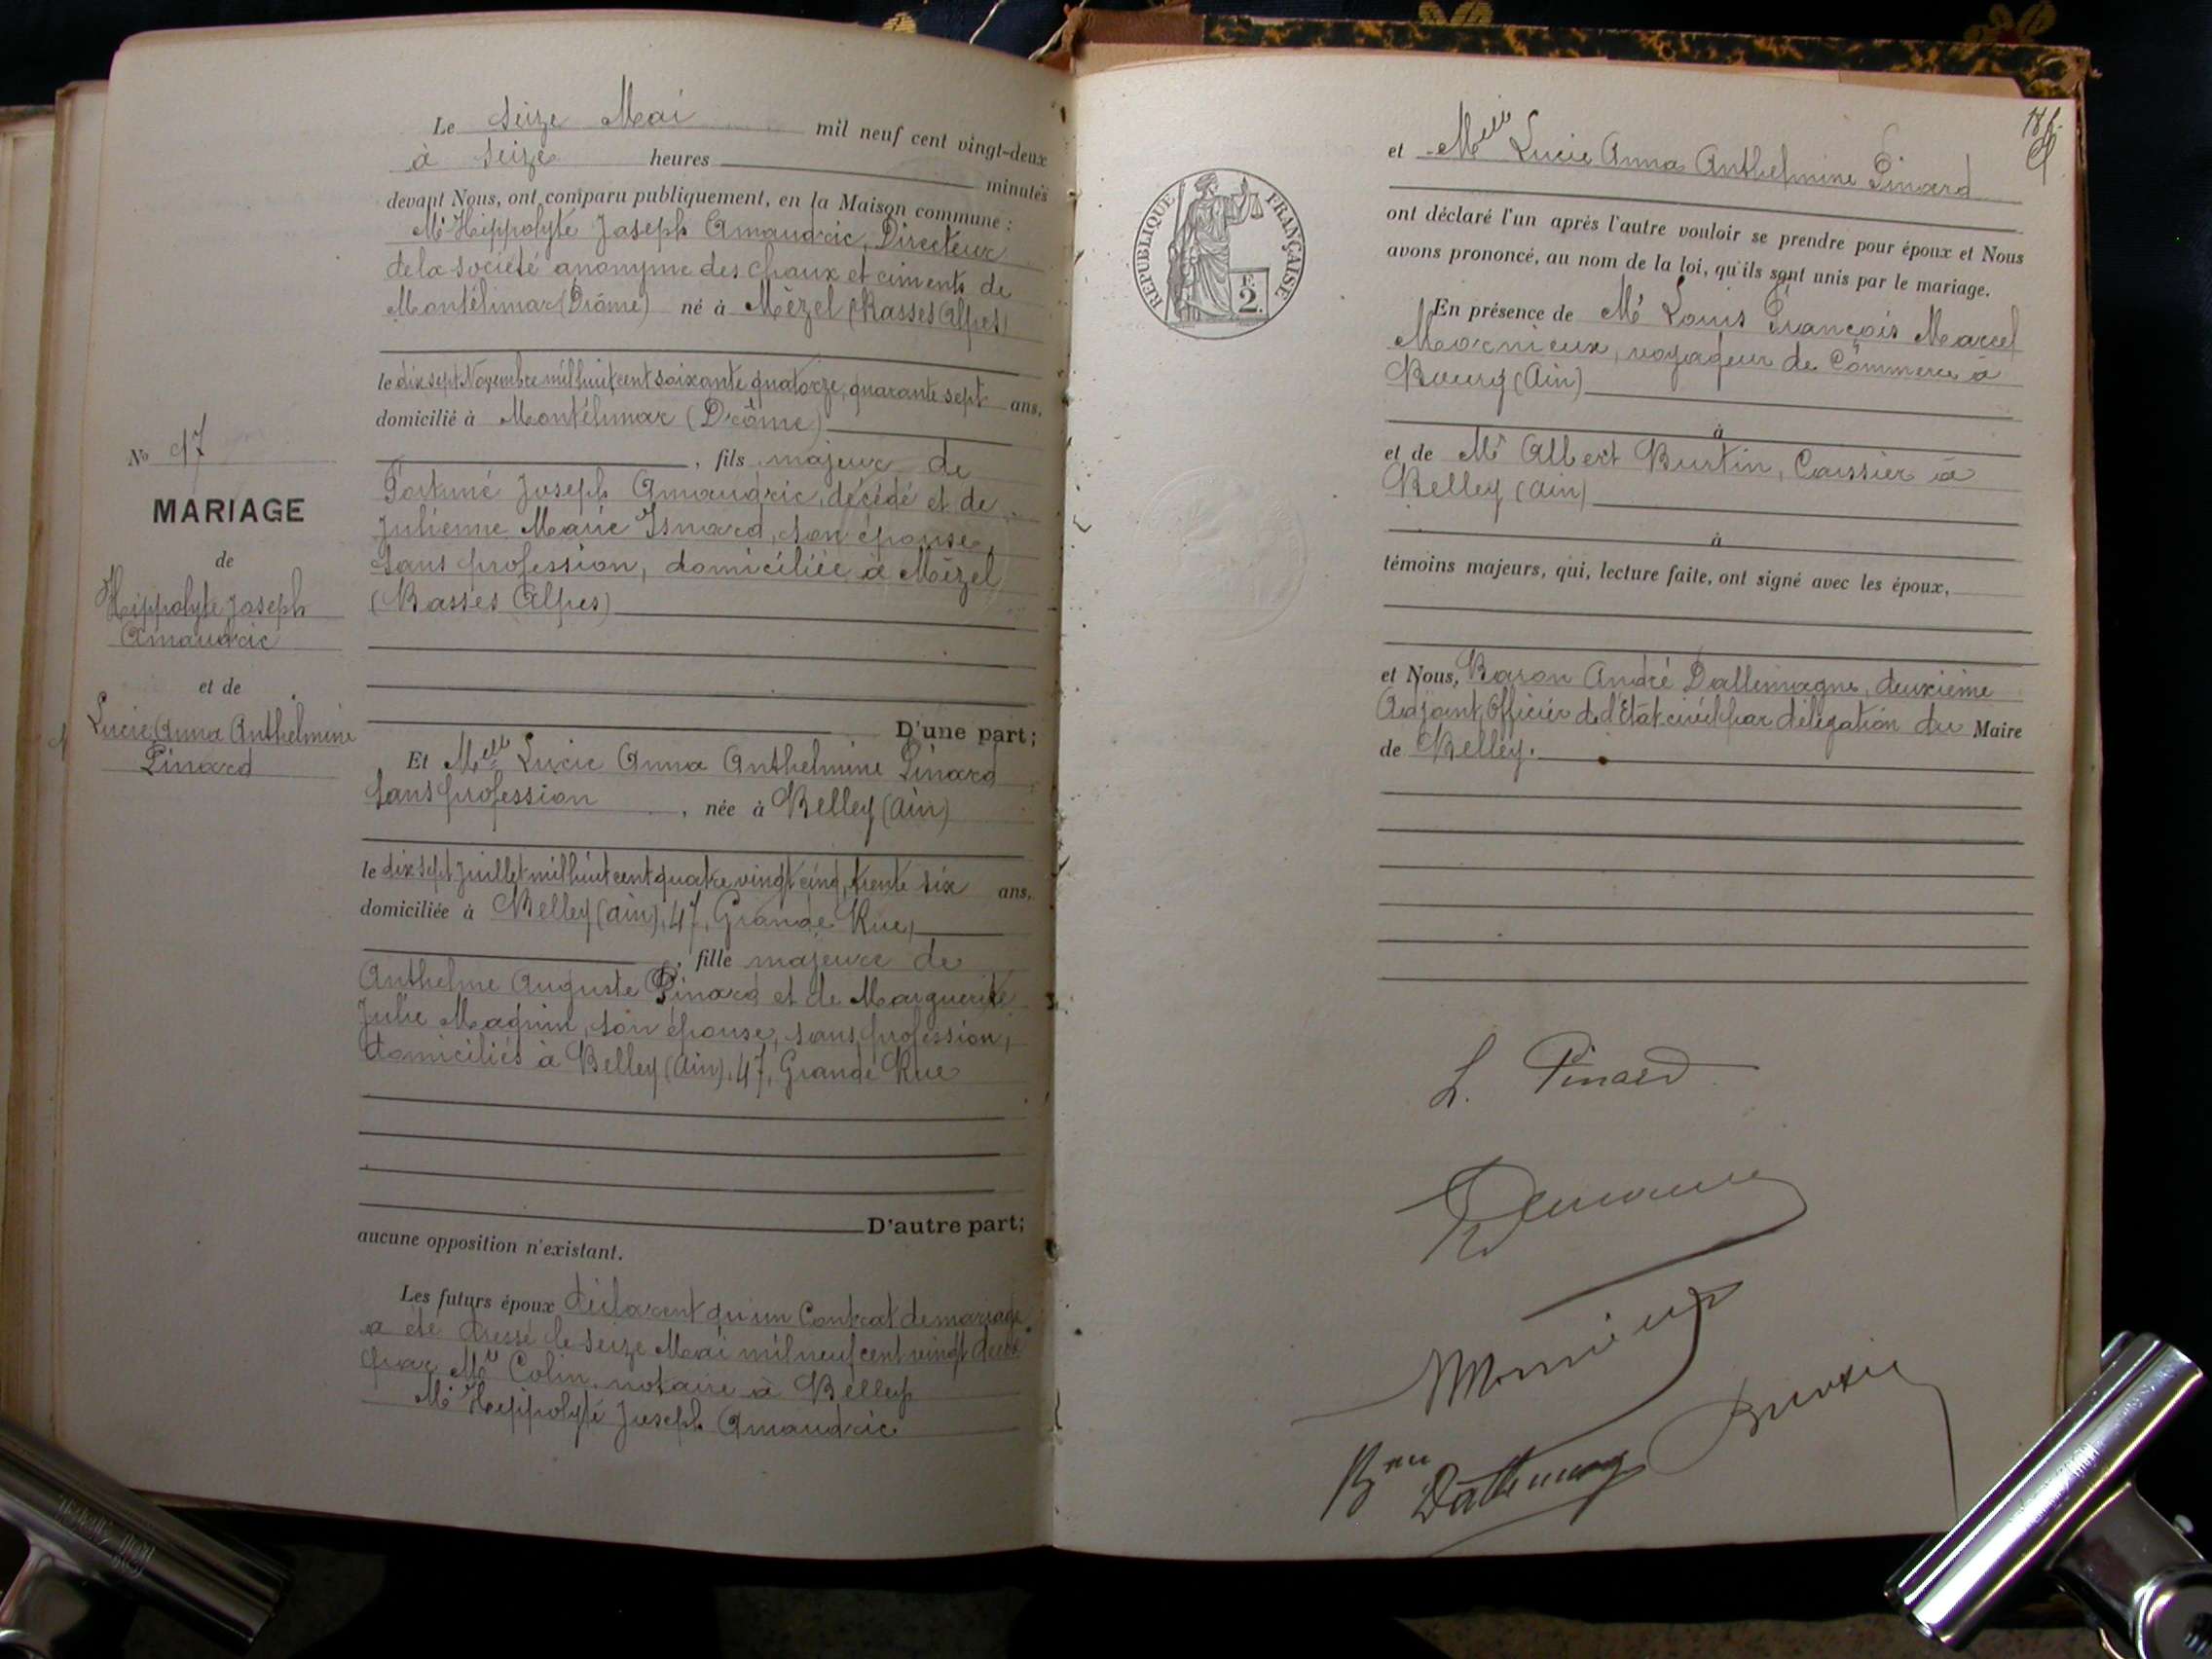 Le seize Mai mil neuf cent vingt-deux
à seize heures minutes
devant Nous, ont comparu publiquement, en la Maison commune :
Mr Hippolyte Joseph Amaudric, Directeur
de la société anonyme des chaux et ciments de
Montélimar (Drôme) né à Mézel (Basses Alpes)
le dix sept Novembre mil huit cent soixante quatorze, quarante sept ans,
domicilié à Montélimar (Drôme)
, fils majeur de
Fortuné Joseph Amaudric, décédé et de
Julienne Marie Isnard, son épouse,
sans profession, domiciliée à Mézel
(Basses Alpes)
D'une part;
Et Melle Lucie Anna Anthelmine Pinard
sans profession, née à Belley (Ain)
le dix sept Juillet mil huit cent quatre vingt cinq, trente six ans,
domiciliée à Belley (Ain), 47, Grande Rue,
, fille majeure de
Anthelme Auguste Pinard et de Marguerite
Julie Magnin, son épouse, sans profession,
domiciliés à Belley (Ain), 47, Grande Rue
D'autre part;
aucune opposition n'existant.
Les futurs époux déclarent qu'un Contrat de mariage
a été dressé le seize Mai mil neuf cent vingt deux
par Me Colin, notaire à Belley
Mr Hippolyte Joseph Amaudric
No 17
MARIAGE
de
Hippolyte Joseph
Amaudric
et de
Lucie Anna Anthelmine
Pinard
et Melle Lucie Anna Anthelmine Pinard
ont déclaré l'un après l'autre vouloir se prendre pour époux et Nous
avons prononcé, au nom de la loi, qu'ils sont unis par le mariage.
En présence de Mr Louis François Marcel
Mornieux, voyageur de Commerce à
Bourg (Ain)
à
et de Mr Albert Burtin, Caissier à
Belley (Ain)
à
témoins majeurs, qui, lecture faite, ont signé avec les époux,
et Nous, Baron André Dallemagne, deuxième
Adjoint, Officier de l'État civil par délégation du Maire
de Belley.
RÉPUBLIQUE FRANÇAISE
F.
2.
L. Pinard
Mornieux
Burtin
Bon Dallemagne